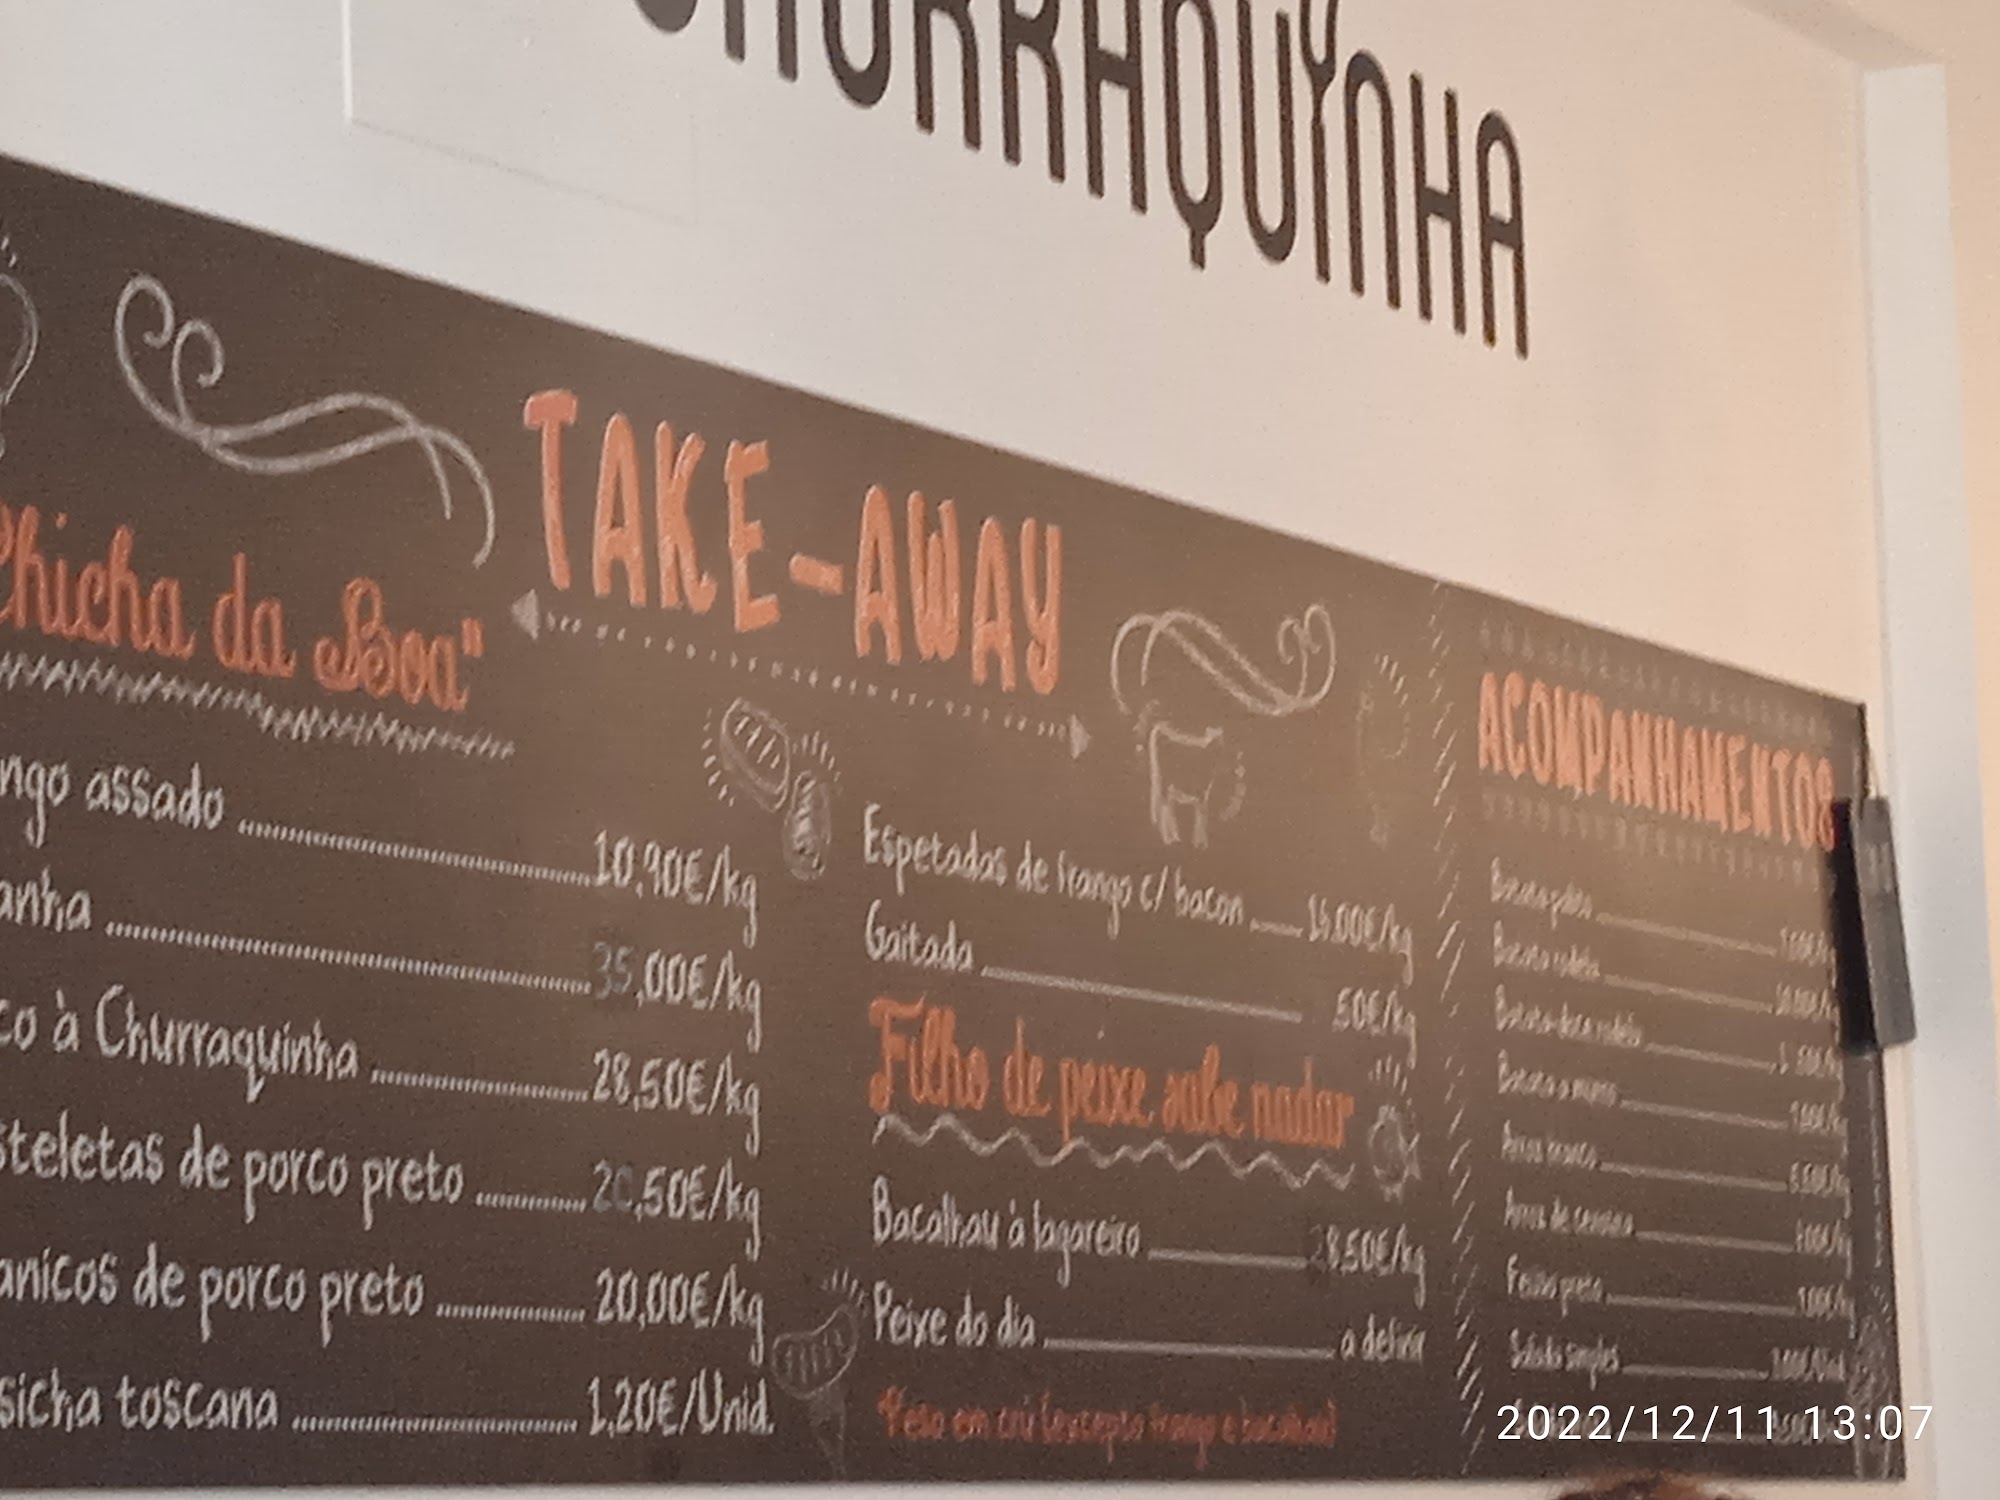 CHURRAQUINHA
TAKE-AWAY
Chicha da Boa"
ngo assado 10,90€/kg
anha 35,00€/kg
co à Churraquinha 28,50€/kg
steletas de porco preto 20,50€/kg
anicos de porco preto 20,00€/kg
sicha toscana 1,20€/Unid.
Espetadas de frango c/ bacon €/kg
Gaitada 50€/kg
Filho de peixe sabe nadar
Bacalhau à lagareiro 28,50€/kg
Peixe do dia a definir
*Peso em cru (excepto frango e bacalhau)
ACOMPANHAMENTOS
Batata palito
Batata rodela
Batata-doce rodela
Batata a murro
Arroz branco
Arroz de
Feijão preto
Salada simples
2022/12/11 13:07